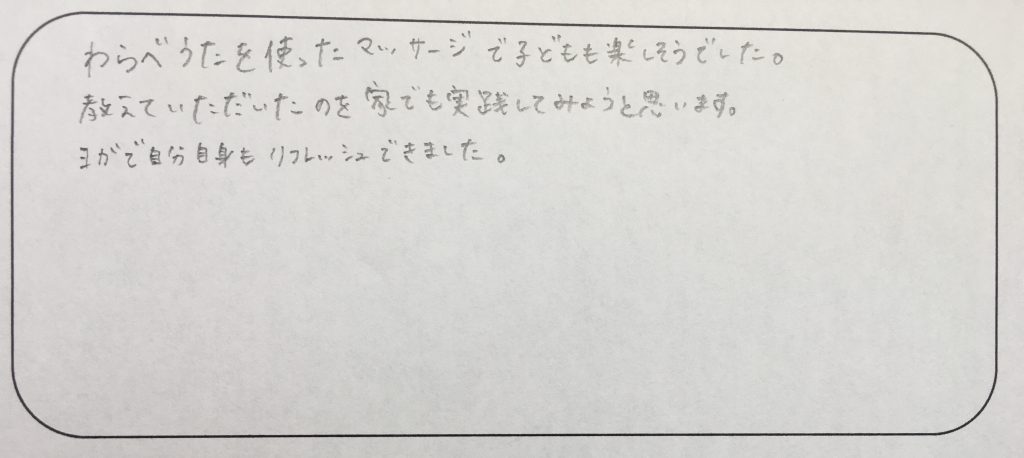 わらべうたを使ったマッサージで子どもも楽しそうでした。
教えていただいたのを家でも実践してみようと思います。
ヨガで自分自身もリフレッシュできました。